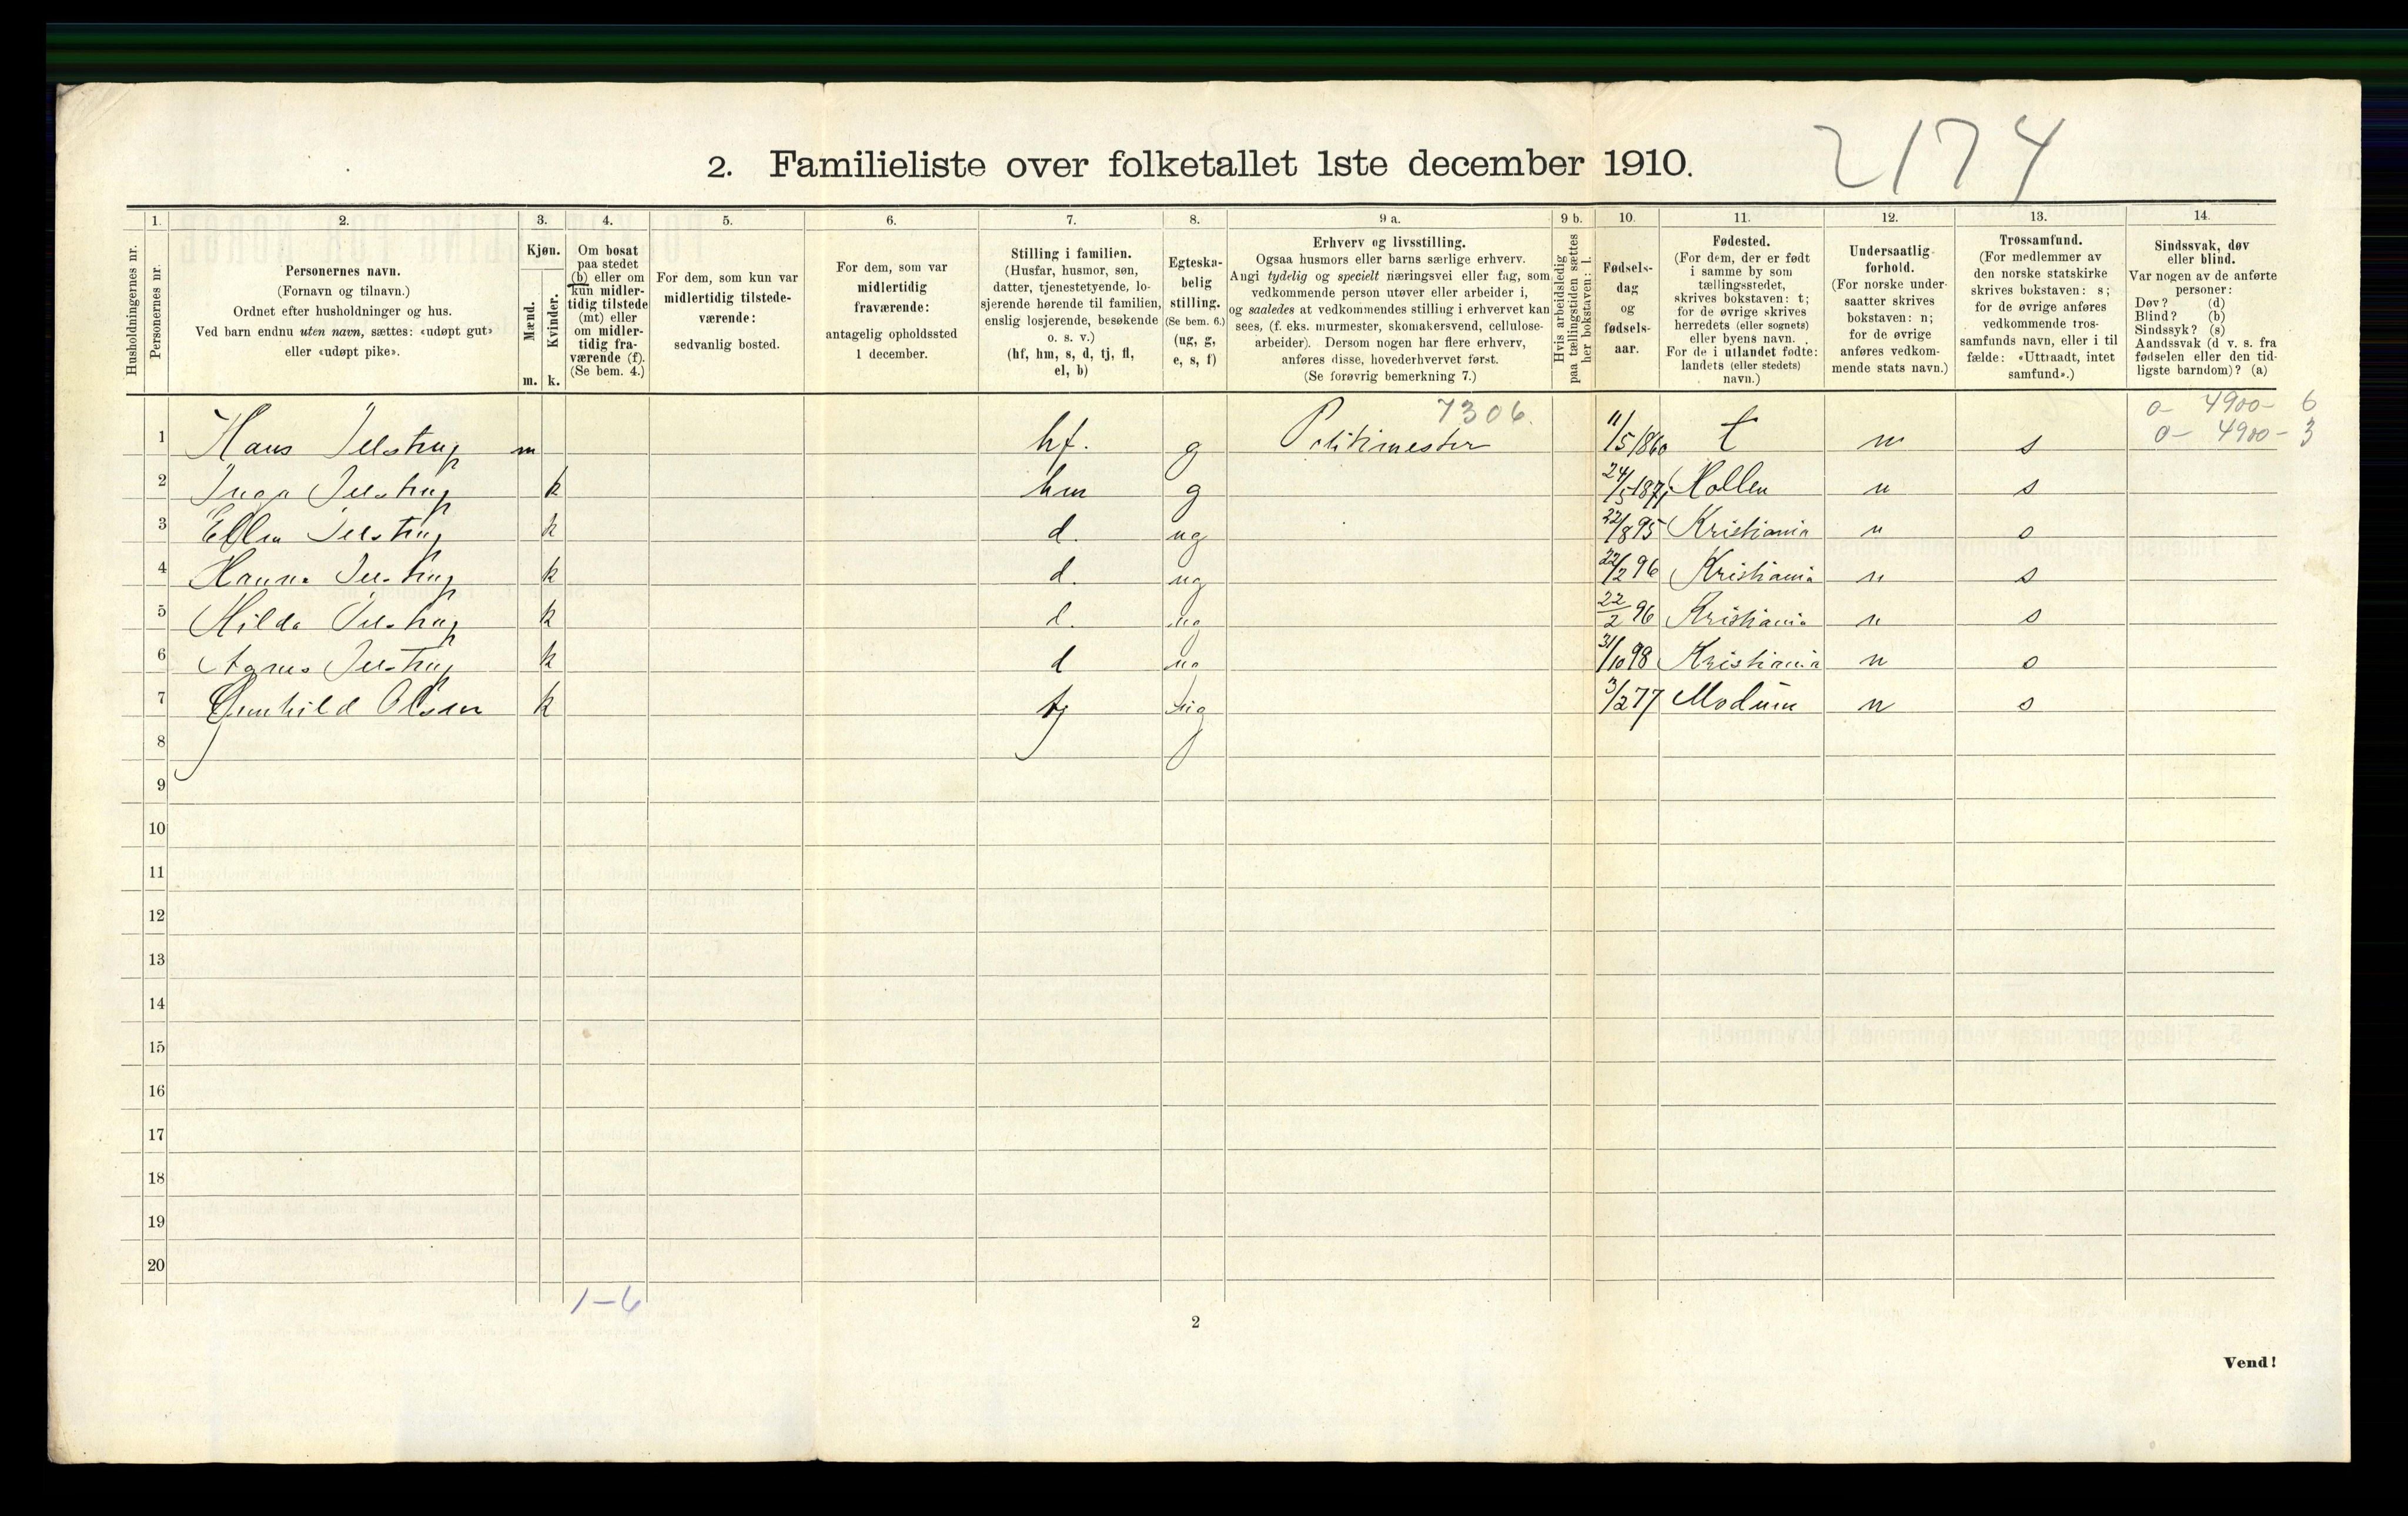 2174
2. Familieliste over folketallet 1ste december 1910.
1. 2. 3. 4. 5. 6. 7. 8. 9 a. 9 b. 10. 11. 12. 13. 14.
Husholdningernes nr.
Personernes nr.
Personernes navn.
(Fornavn og tilnavn.)
Ordnet efter husholdninger og hus.
Ved barn endnu uten navn, sættes: «udøpt gut»
eller «udøpt pike».
Kjøn.
Mænd.
Kvinder.
m. k.
Om bosat
paa stedet
(b) eller om
kun midler-
tidig tilstede
(mt) eller
om midler-
tidig fra-
værende (f).
(Se bem. 4.)
For dem, som kun var
midlertidig tilstede-
værende:
sedvanlig bosted.
For dem, som var
midlertidig
fraværende:
antagelig opholdssted
1 december.
Stilling i familien.
(Husfar, husmor, søn,
datter, tjenestetyende, lo-
sjerende hørende til familien,
enslig losjerende, besøkende
o. s. v.)
(hf, hm, s, d, tj, fl,
el, b)
Egteska-
belig
stilling.
(Se bem. 6.)
(ug, g,
e, s, f)
Erhverv og livsstilling.
Ogsaa husmors eller barns særlige erhverv.
Angi tydelig og specielt næringsvei eller fag, som
vedkommende person utøver eller arbeider i,
og saaledes at vedkommendes stilling i erhvervet kan
sees, (f. eks. murmester, skomakersvend, cellulose-
arbeider). Dersom nogen har flere erhverv,
anføres disse, hovederhvervet først.
(Se forøvrig bemerkning 7.)
Hvis arbeidsledig
paa tællingstiden sættes
her bokstaven: l.
Fødsels-
dag
og
fødsels-
aar.
Fødested.
(For dem, der er født
i samme by som
tællingsstedet,
skrives bokstaven: t;
for de øvrige skrives
herredets (eller sognets)
eller byens navn.
For de i utlandet fødte:
landets (eller stedets)
navn.)
Undersaatlig
forhold.
(For norske under-
saatter skrives
bokstaven: n;
for de øvrige
anføres vedkom-
mende stats navn.)
Trossamfund.
(For medlemmer av
den norske statskirke
skrives bokstaven: s;
for de øvrige anføres
vedkommende tros-
samfunds navn, eller i til
fælde: «Uttraadt, intet
samfund».)
Sindssvak, døv
eller blind.
Var nogen av de anførte
personer:
Døv? (d)
Blind? (b)
Sindssyk? (s)
Aandssvak (d v. s. fra
fødselen eller den tid-
ligste barndom)? (a)
7306. 0- 4900- 6
0- 4900- 3
1 Hans Jelstrup m hf. g Politimester 11/5 1860 t n s
2 Inga Jelstrup k hm g 24/5 187 Hollen n s
3 Ellen Jelstrup k d. ug 22/8 95 Kristiania n s
4 Hanna Jelstrup k d. ug 22/2 96 Kristiania n s
5 Hilda Jelstrup k d. ug 22/2 96 Kristiania n s
6 Agnes Jelstrup k d ug 31/10 98 Kristiania n s
7 Gunhild Olsen k tj ug 3/2 77 Modum n s
8
9
10
11
12
13
14
15
16
17
18
19
20
1-6
2
Vend!